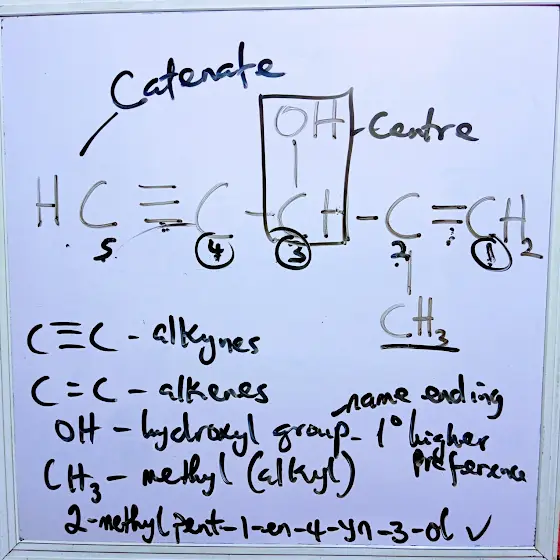 Catenate
OH
Centre
HC ≡ C - CH - C = CH2
5 4 3 2 1
CH3
C≡C - alkynes
C=C - alkenes
name ending
OH - hydroxyl group - 1° higher preference
CH3 - methyl (alkyl)
2-methylpent-1-en-4-yn-3-ol ✓